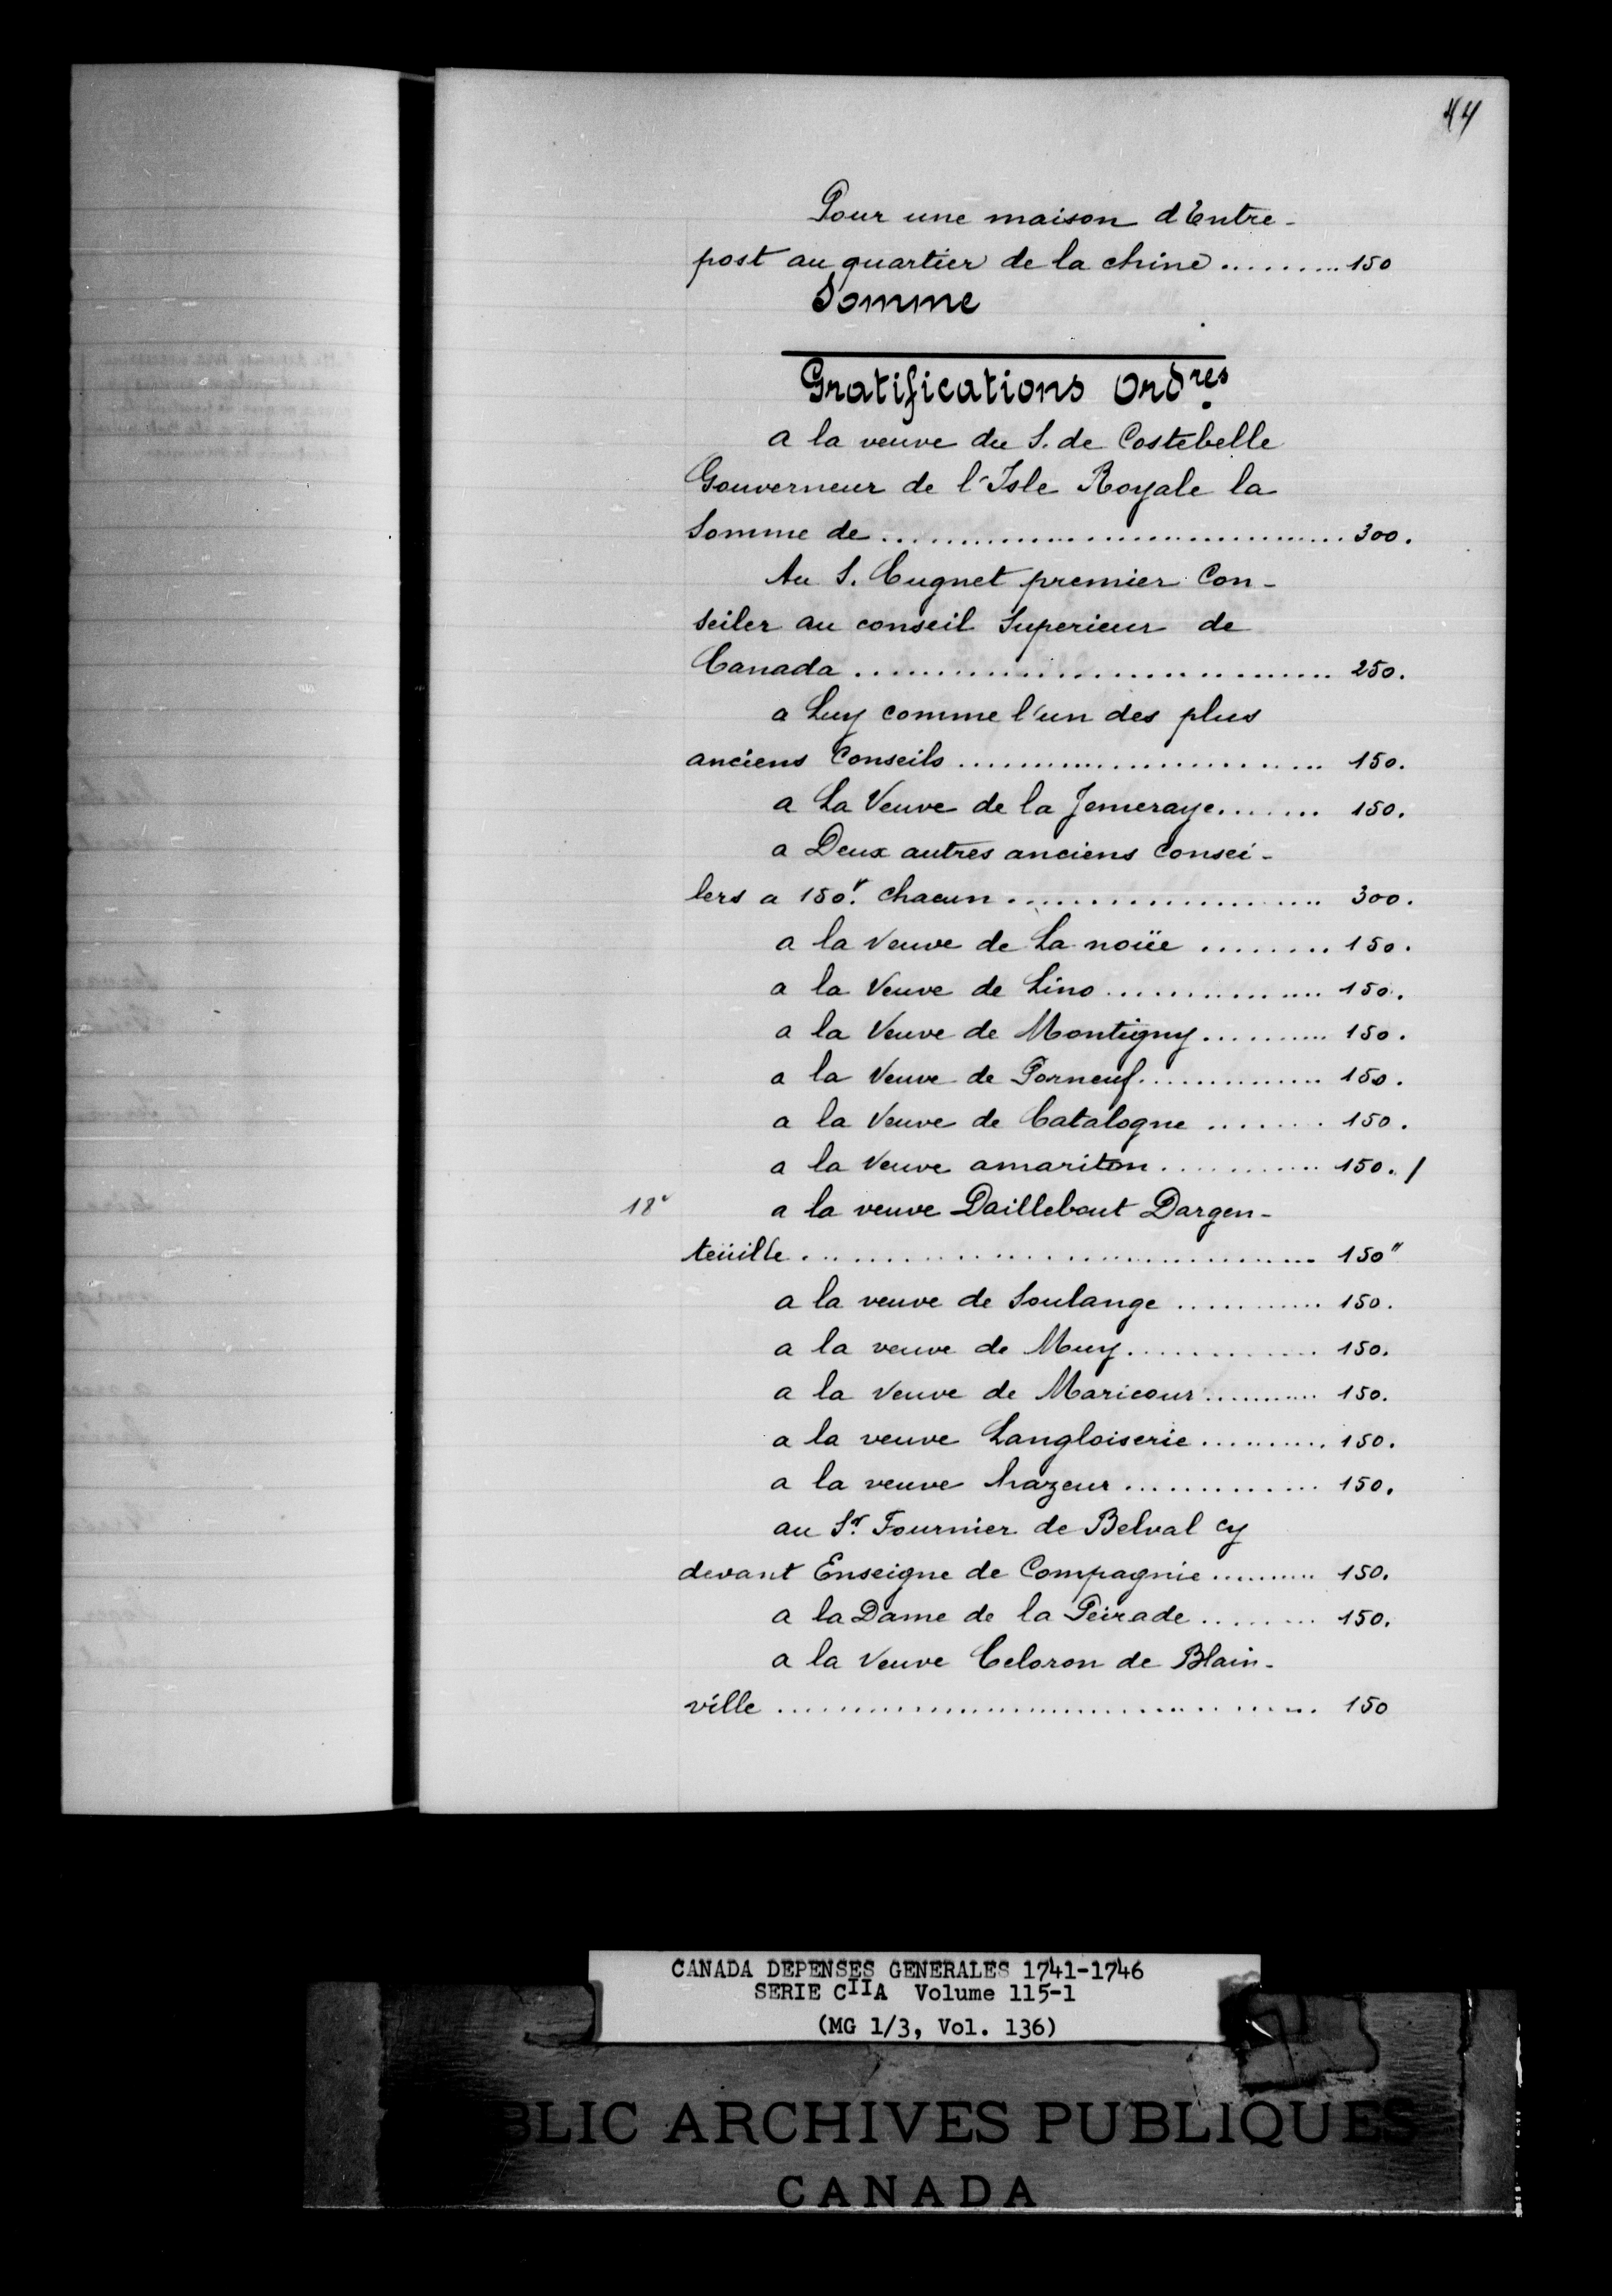 44
Pour une maison d'Entre-
post au quartier de la chine .......... 150
Somme
Gratifications Ordres
a la veuve du S. de Costebelle
Gouverneur de l'Isle Royale la
Somme de .......... 300.
Au S. Cugnet premier Con-
seiler au conseil Superieur de
Canada .......... 250.
a Luy comme l'un des plus
anciens Conseils .......... 150.
a La Veuve de la Jemeraye .......... 150.
a Deux autres anciens Consei-
lers a 150# chacun .......... 300.
a la Veuve de La noüe .......... 150.
a la Veuve de Lino .......... 150.
a la Veuve de Montigny .......... 150.
a la Veuve de Porneuf .......... 150.
a la Veuve de Catalogne .......... 150.
a la Veuve amariton .......... 150./
18v a la veuve Daillebout Dargen-
teüille .......... 150"
a la veuve de Soulange .......... 150.
a la veuve de Muy .......... 150.
a la Veuve de Maricour .......... 150.
a la veuve Langloiserie .......... 150.
a la veuve hazeur .......... 150.
au Sr. Fournier de Belval cy
devant Enseigne de Compagnie .......... 150.
a la Dame de la Peirade .......... 150.
a la Veuve Celoron de Blain-
ville .......... 150
CANADA DEPENSES GENERALES 1741-1746
SERIE CIIA Volume 115-1
(MG 1/3, Vol. 136)
BLIC ARCHIVES PUBLIQUES
CANADA